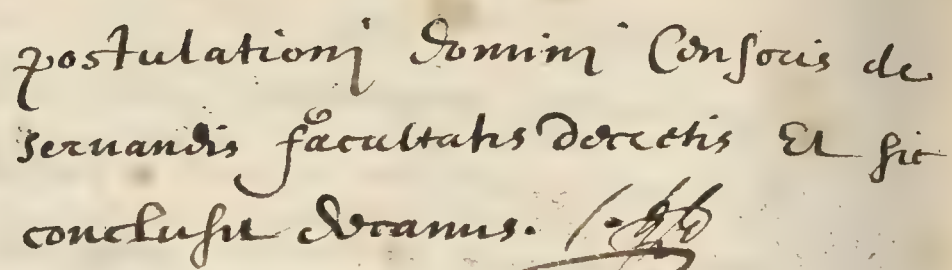 postulationj Domini Consocis de
seruandis facultatis Decretis Et sic
conclusit Decanus.